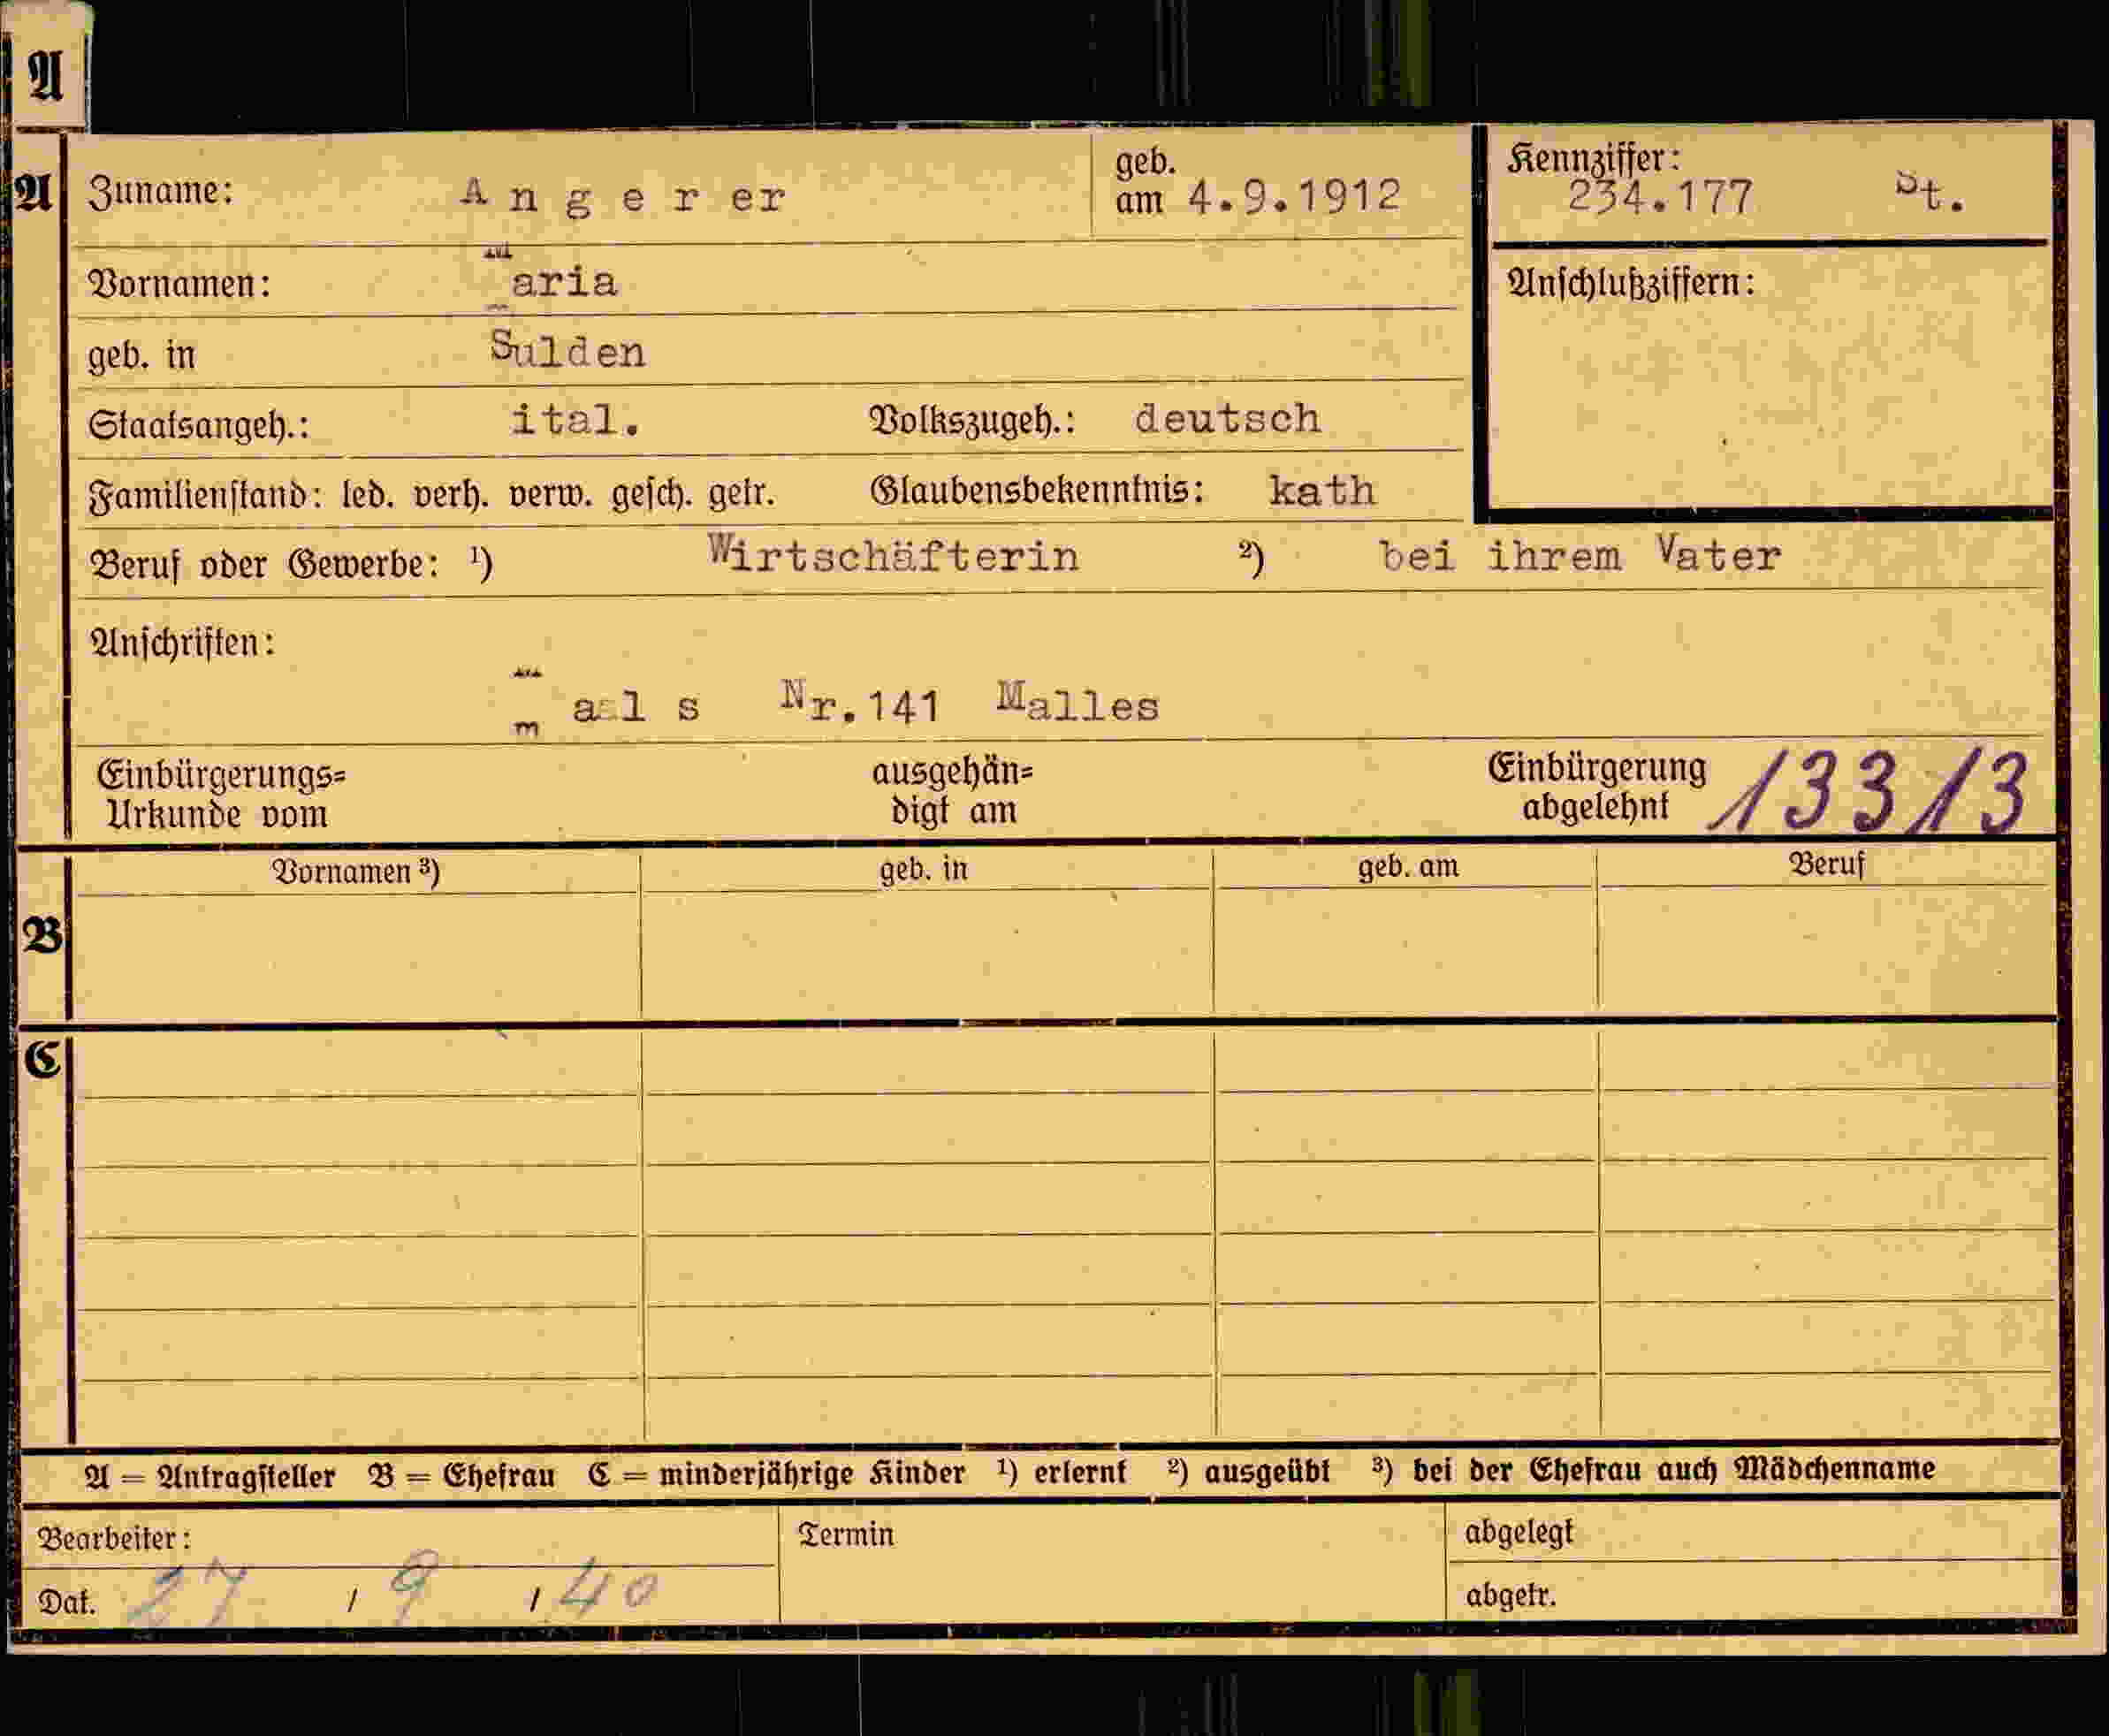 A
A Zuname: Angerer geb. am 4.9.1912 Kennziffer: 234.177 St.
Vornamen: Maria Anschlußziffern:
geb. in Sulden
Staatsangeh.: ital. Volkszugeh.: deutsch
Familienstand: led. verh. verw. gesch. getr. Glaubensbekenntnis: kath
Beruf oder Gewerbe: ¹) Wirtschäfterin ²) bei ihrem Vater
Anschriften:
Mals Nr.141 Malles
Einbürgerungs=
Urkunde vom
ausgehän=
digt am
Einbürgerung
abgelehnt
13313
Vornamen ³) geb. in geb. am Beruf
B
C
A = Antragsteller B = Ehefrau C = minderjährige Kinder ¹) erlernt ²) ausgeübt ³) bei der Ehefrau auch Mädchenname
Bearbeiter: Termin abgelegt
Dat. 27 / 9 / 40 abgetr.